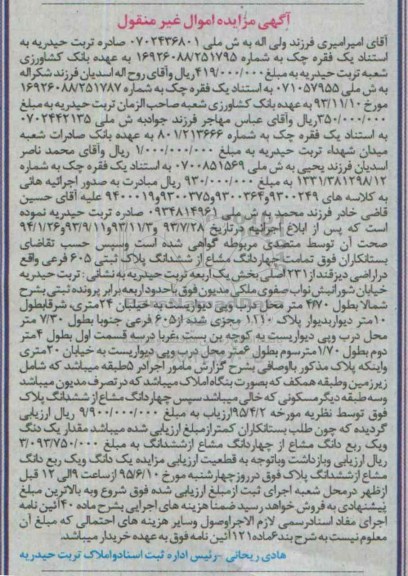 آگهی مزایده اموال غیر منقول
آقای امیرامیری فرزند ولی اله به ش ملی ۰۷۰۲۴۳۶۸۰۱ صادره تربت حیدریه به
استناد یک فقره چک به شماره ۱۶۹۲۶۰۸۸/۲۵۱۷۹۵ به عهده بانک کشاورزی
شعبه تربت حیدریه به مبلغ ۴۱۹/۰۰۰/۰۰۰ریال وآقای روح اله اسدیان فرزند شکراله
به ش ملی ۰۷۱۰۵۷۹۵۵ به استناد یک فقره چک به شماره ۱۶۹۲۶۰۸۸/۲۵۱۷۸۷
مورخ ۹۳/۱۱/۱۰ به عهده بانک کشاورزی شعبه صاحب الزمان تربت حیدریه به مبلغ
۳۵۰/۰۰۰/۰۰۰ریال وآقای عباس مهاجر فرزند جوادبه ش ملی ۰۷۰۲۴۴۲۱۳۵
به استناد یک فقره چک به شماره ۸۰۱/۲۱۳۶۶۶ به عهده بانک صادرات شعبه
میدان شهداء تربت حیدریه به مبلغ ۱/۰۰۰/۰۰۰/۰۰۰ ریال وآقای محمد ناصر
اسدیان فرزند یحیی به ش ملی ۰۷۰۰۸۵۱۵۶۹ به استناد یک فقره چک به شماره
۱۳۳۱/۳۸۱۲۹۸/۱۲ به مبلغ ۹۳۰/۰۰۰/۰۰۰ ریال مبادرت به صدور اجرائیه هائی
به کلاسه های ۹۳۰۰۲۴۹و۹۳۰۰۳۶۴و۹۳۰۰۳۷۵و۹۴۰۰۰۱۹ علیه آقای حسین
قاضی خادر فرزند محمد به ش ملی ۰۹۳۴۸۱۴۹۶۱ صادره تربت حیدریه نموده
است که پس از ابلاغ اجرائیه درتاریخ ۹۳/۷/۲۸و۹۳/۱۱/۳و۹۳/۹/۱۱و۹۴/۱/۲۶
صحت آن توسط متصدی مربوطه گواهی شده است وسپس حسب تقاضای
بستانکاران فوق تمامت چهاردانگ مشاع از ششدانگ پلاک ثبتی ۶۰۵ فرعی واقع
دراراضی دیزقند از۲۳۱ اصلی بخش یک اربعه تربت حیدریه به نشانی : تربت حیدریه
خیابان شورانبش نواب صفوی ملکی مدیون فوق باحدوداربعه برابر پرونده ثبتی بشرح
شمالا بطول ۴/۷۰ متر محل درب وپی دیواریست به خیابان ۲۴متری، شرقابطول
۱۰متر دیواربدیوار پلاک ۱۱۱۰ مجزی شده از۶۰۵ فرعی جنوبا بطول ۷/۳۰ متر
محل درب وپی دیواریست به کوچه بن بست ،غربا درسه قسمت اول بطول ۴متر
دوم بطول ۱/۷۰مترسوم بطول ۶متر محل درب وپی دیواریست به خیابان ۲۰متری
واینکه پلاک مذکور بااوصافی بشرح گزارش مامور اجرادر ۵طبقه میباشد که شامل
زیرزمین وطبقه همکف که بصورت بنگاه املاک میباشد که در تصرف مدیون میباشد
وسه طبقه دیگرمسکونی که خالی میباشد سپس چهاردانگ مشاع از ششدانگ پلاک
فوق توسط نظریه مورخه ۹۵/۴/۲ارزیاب به مبلغ ۹/۹۰۰/۰۰۰/۰۰۰ ریال ارزیابی
گردیده که چون طلب بستانکاران کمترازمبلغ ارزیابی شده میباشد مقدار یک دنگ
ویک ربع دانگ مشاع از چهاردانگ مشاع ازششدانگ به مبلغ ۳/۰۹۳/۷۵۰/۰۰۰
ریال ارزیابی وبازداشت وباتوجه به قطعیت ارزیابی مزایده یک دانگ ویک ربع دانگ
مشاع ازششدانگ پلاک فوق درروزچهارشنبه مورخ ۹۵/۶/۱۰ ازساعت ۹الی ۱۲ قبل
ازظهر درمحل شعبه اجرای ثبت ازمبلغ ارزیابی شده فوق شروع وبه بالاترین مبلغ
پیشنهادی به فروش خواهد رسید ضمناً هزینه های اجرایی بشرح ماده ۴۰آئین نامه
اجرای مفاد اسنادرسمی لازم الاجراوصول وسایر هزینه های احتمالی که مبلغ آن
معلوم نیست به شرح بند۶ماده ۱۲۱ آئین نامه فوق به عهده خریدار میباشد.
هادی ریحانی -رئیس اداره ثبت اسنادواملاک تربت حیدریه